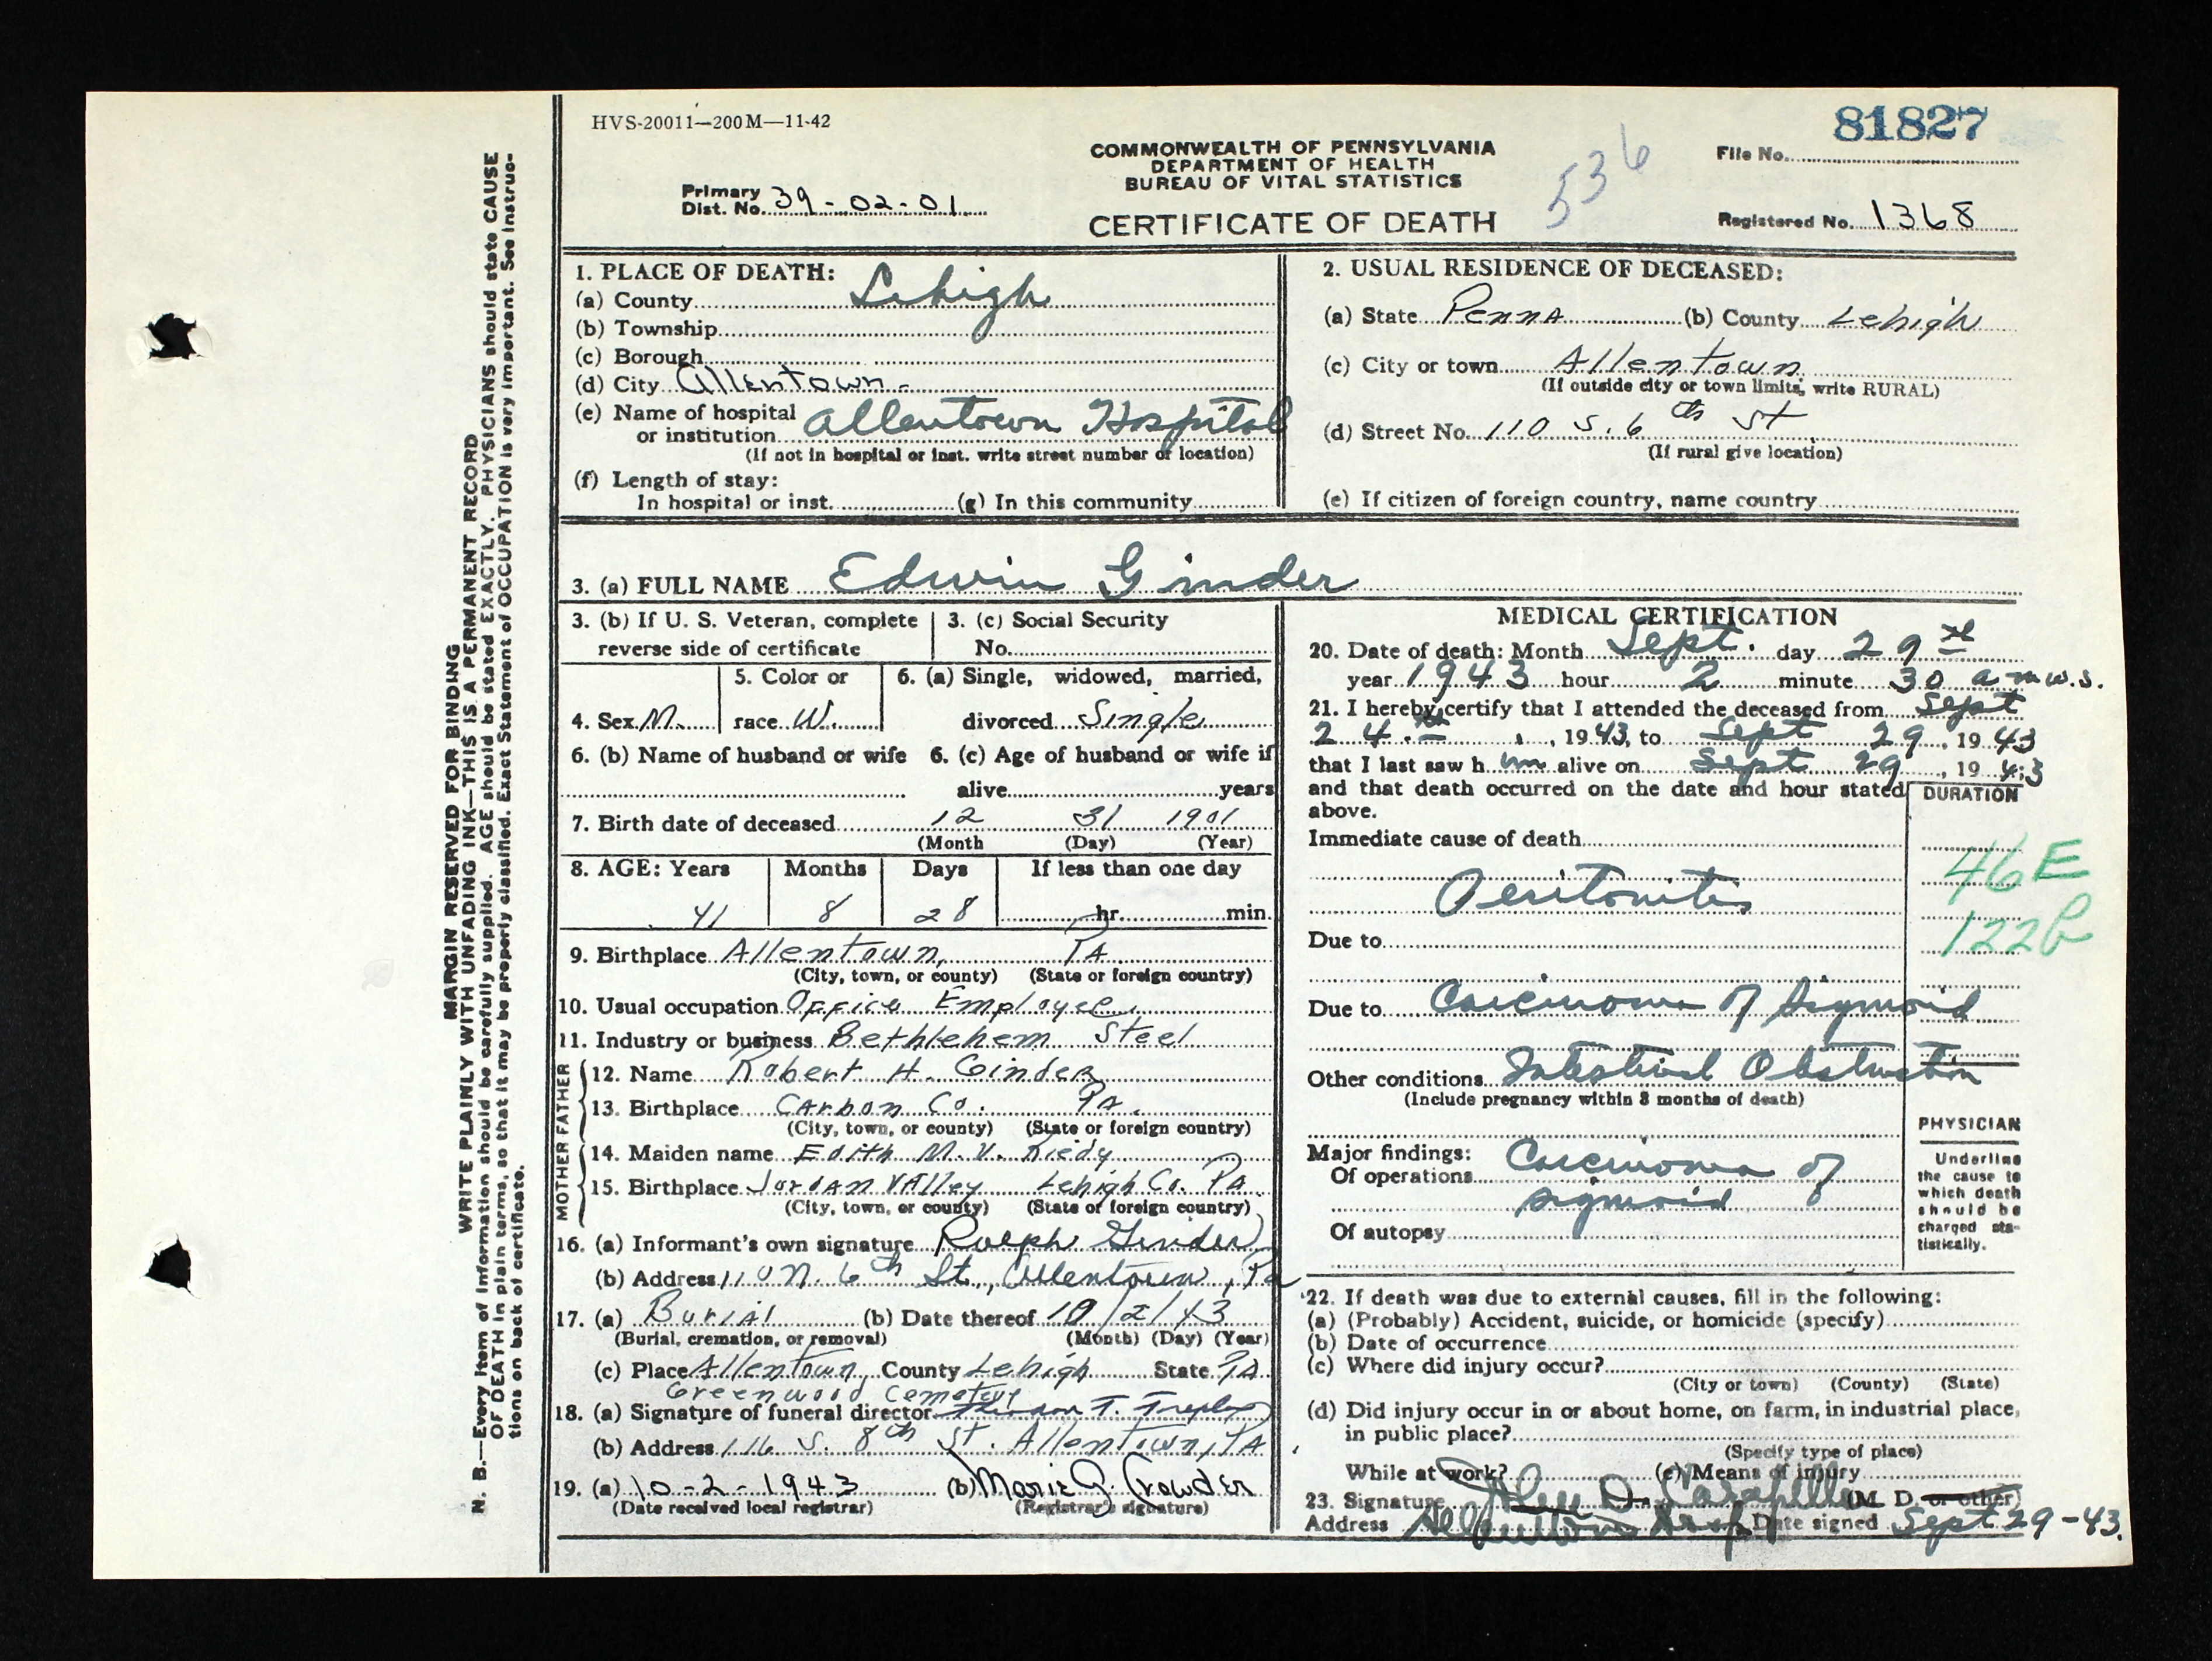 HVS-20011—200M—11-42
81827
File No.
COMMONWEALTH OF PENNSYLVANIA
DEPARTMENT OF HEALTH
BUREAU OF VITAL STATISTICS
536
Primary
Dist. No. 39-02-01
CERTIFICATE OF DEATH
Registered No. 1368
MARGIN RESERVED FOR BINDING
WRITE PLAINLY WITH UNFADING INK—THIS IS A PERMANENT RECORD
N. B.—Every item of information should be carefully supplied. AGE should be stated EXACTLY. PHYSICIANS should state CAUSE
OF DEATH in plain terms, so that it may be properly classified. Exact Statement of OCCUPATION is very important. See instruc-
tions on back of certificate.
1. PLACE OF DEATH:
(a) County Lehigh
(b) Township
(c) Borough
(d) City Allentown
(e) Name of hospital
or institution Allentown Hospital
(If not in hospital or inst. write street number of location)
(f) Length of stay:
In hospital or inst. (g) In this community
2. USUAL RESIDENCE OF DECEASED:
(a) State Penna (b) County Lehigh
(c) City or town Allentown
(If outside city or town limits, write RURAL)
(d) Street No. 110 S. 6th St
(If rural give location)
(e) If citizen of foreign country, name country
3. (a) FULL NAME Edwin Ginder
3. (b) If U. S. Veteran, complete
reverse side of certificate
3. (c) Social Security
No.
4. Sex M.
5. Color or
race W.
6. (a) Single, widowed, married,
divorced Single
6. (b) Name of husband or wife
6. (c) Age of husband or wife if
alive years
7. Birth date of deceased 12 31 1901
(Month (Day) (Year)
8. AGE: Years Months Days If less than one day
41 8 28 hr. min.
9. Birthplace Allentown, PA.
(City, town, or county) (State or foreign country)
10. Usual occupation Office Employee
11. Industry or business Bethlehem Steel
FATHER
12. Name Robert H. Ginder
13. Birthplace Carbon Co. Pa.
(City, town, or county) (State or foreign country)
MOTHER
14. Maiden name Edith M. V. Riedy
15. Birthplace Jordan Valley Lehigh Co. Pa.
(City, town, or county) (State or foreign country)
16. (a) Informant's own signature Ralph Ginder
(b) Address 110 N. 6th St., Allentown, Pa
17. (a) Burial (b) Date thereof 10/2/43
(Burial, cremation, or removal) (Month) (Day) (Year)
(c) Place Allentown, County Lehigh State PA
Greenwood Cemetery
18. (a) Signature of funeral director T.
(b) Address 116 S. 8th St. Allentown, PA
19. (a) 10-2-1943 (b) Marie Crowder
(Date received local registrar) (Registrar's signature)
MEDICAL CERTIFICATION
20. Date of death: Month Sept. day 29th
year 1943 hour 2 minute 30 a m w.s.
21. I hereby certify that I attended the deceased from Sept
24th, 1943, to Sept 29, 1943
that I last saw him alive on Sept 29, 1943
and that death occurred on the date and hour stated
above.
DURATION
Immediate cause of death
46E
Peritonitis
122B
Due to
Due to Carcinoma of Sigmoid
Other conditions Intestinal Obstruction
(Include pregnancy within 3 months of death)
Major findings:
Of operations Carcinoma of
sigmoid
Of autopsy
PHYSICIAN
Underline
the cause to
which death
should be
charged sta-
tistically.
22. If death was due to external causes, fill in the following:
(a) (Probably) Accident, suicide, or homicide (specify)
(b) Date of occurrence
(c) Where did injury occur?
(City or town) (County) (State)
(d) Did injury occur in or about home, on farm, in industrial place,
in public place?
(Specify type of place)
While at work? (e) Means of injury
23. Signature D. (M. D. or other)
Address Allentown Hosp Date signed Sept 29-43.